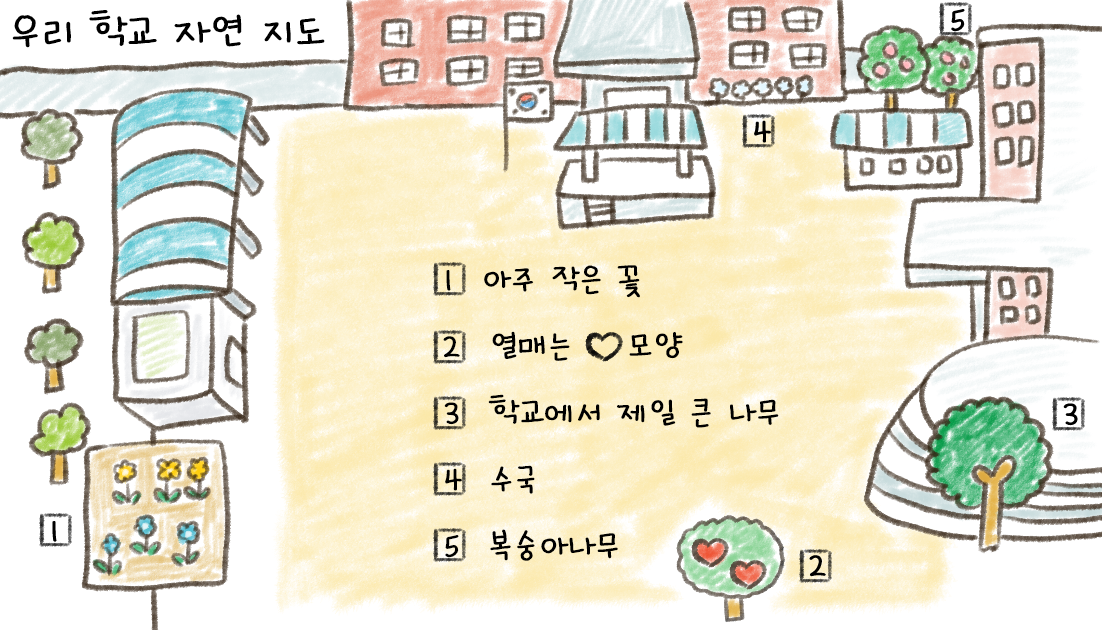 우리 학교 자연 지도
5
4
1 아주 작은 꽃
2 열매는 ♡모양
3 학교에서 제일 큰 나무
3
4 수국
1
5 복숭아나무
2